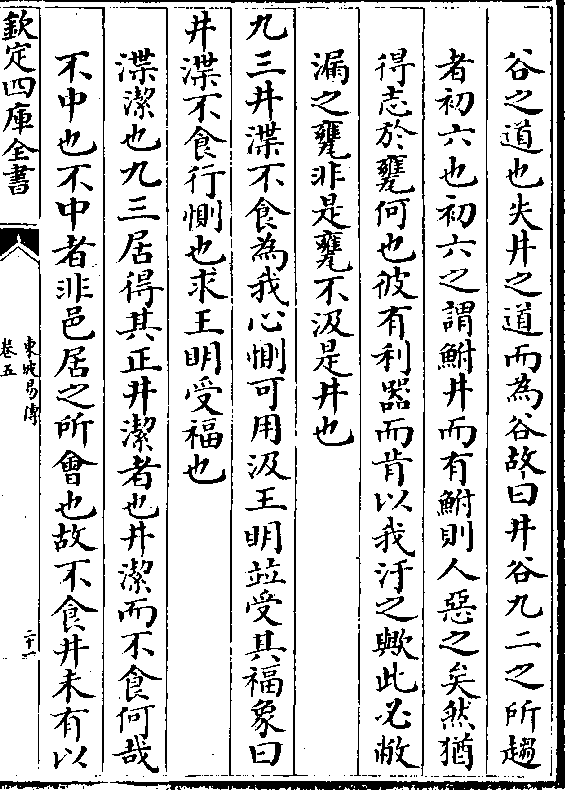 谷之道也失井之道而為谷故曰井谷九二之所趨
者初六也初六之謂鮒井而有鮒則人惡之矣然猶
得志於甕何也彼有利器而肯以我汙之歟此必敝
漏之甕非是甕不汲是井也
九三井渫不食為我心惻可用汲王明竝受其福象曰
井渫不食行惻也求王明受福也
渫潔也九三居得其正井潔者也井潔而不食何哉
不中也不中者非邑居之所會也故不食井未有以
欽定四庫全書
東坡易傳
卷五
二十一